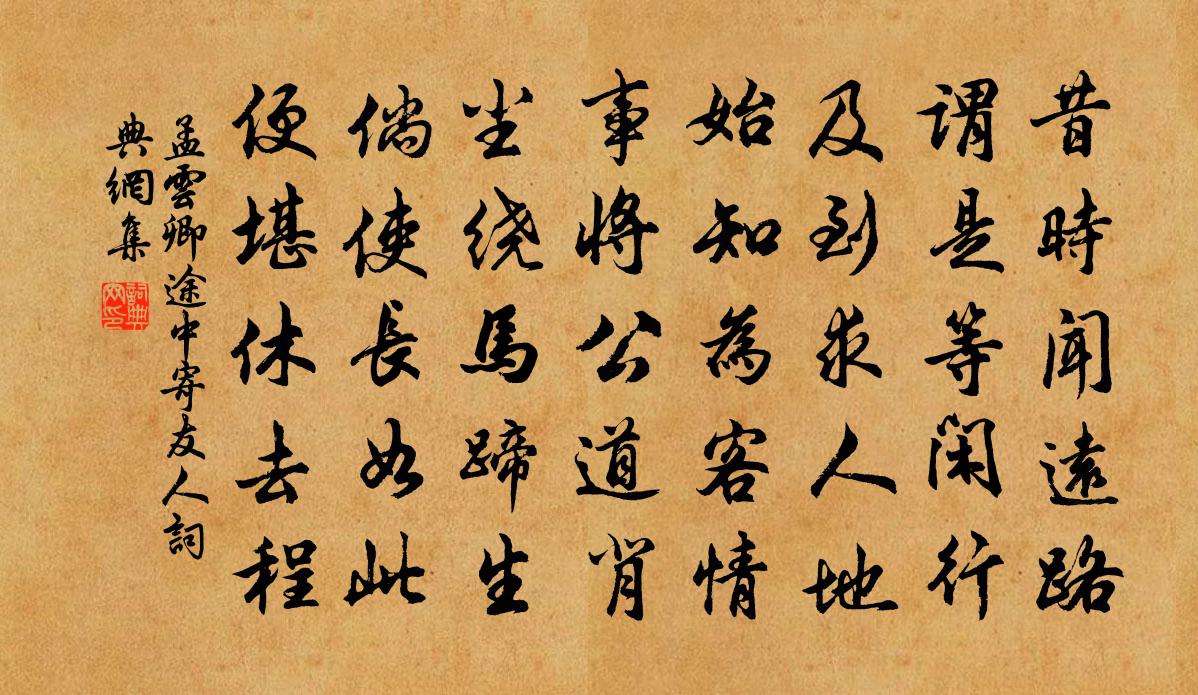 昔時聞遠路
謂是等閑行
及到求人地
始知為客情
事將公道背
尘绕馬蹄生
倘使長如此
便堪休去程
孟雲卿途中寄友人詞
典網集
詞典网印